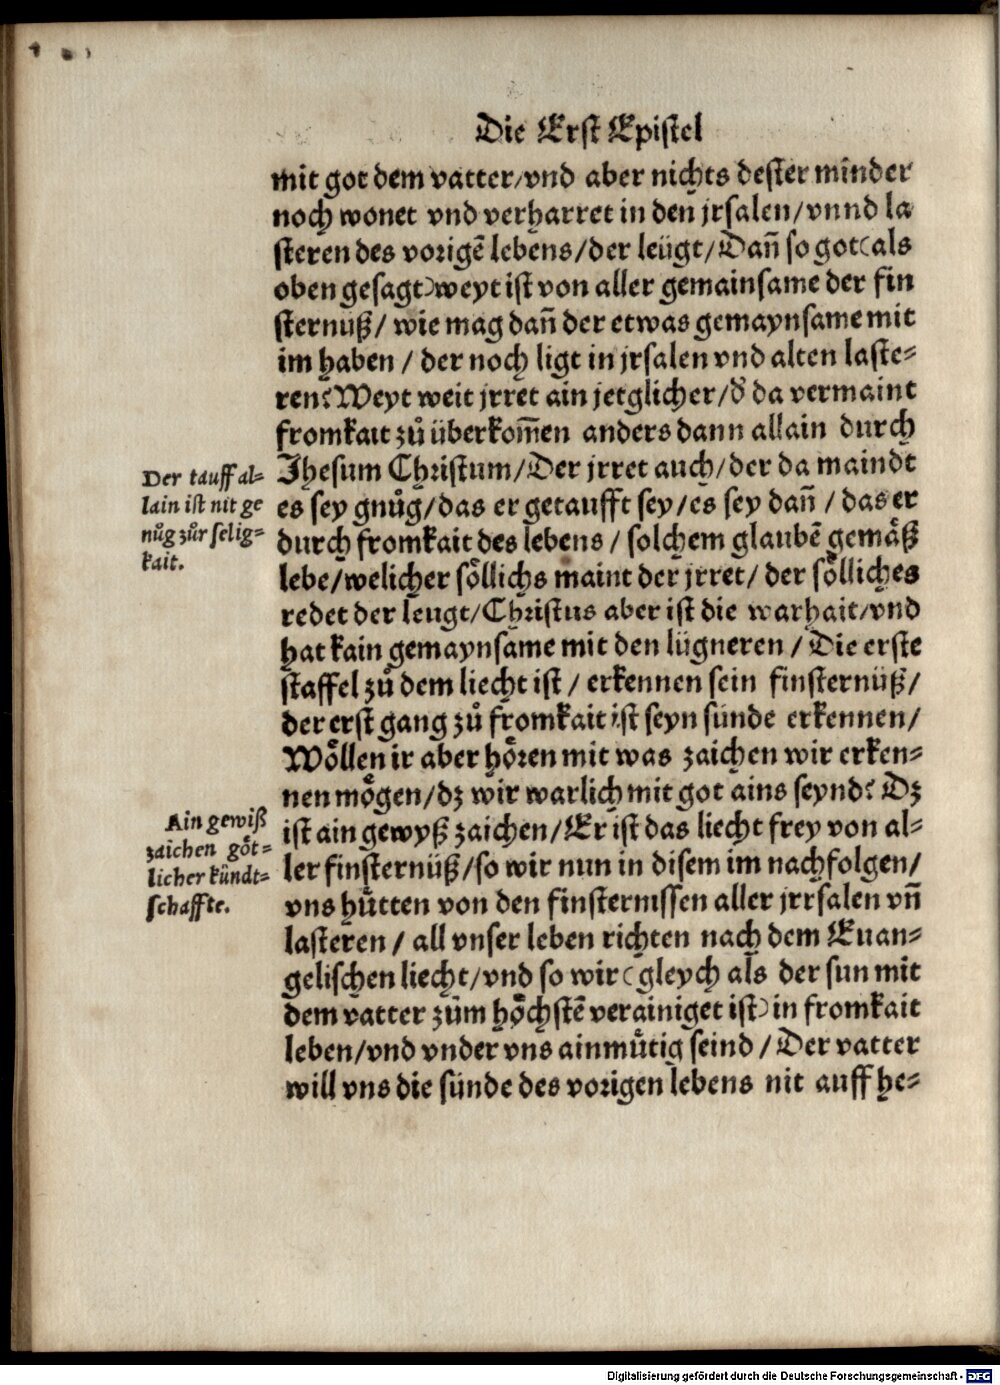 Die Erst Epistel
mit got dem vatter/vnd aber nichts dester minder
noch wonet vnd verharret in den jrsalen/vnnd la
steren des vorigē lebens/der leügt/Dañ so got(als
oben gesagt)weyt ist von aller gemainsame der fin
sternüß/ wie mag dañ der etwas gemaynsame mit
im haben / der noch ligt in jrsalen vnd alten laste⸗
ren? Weyt weit jrret ain jetglicher/d̕ da vermaint
fromkait zů überkom̅en anders dann allain durch
Jhesum Christum/Der jrret auch/der da maindt
es sey gnůg/das er getaufft sey/es sey dañ / das er
durch fromkait des lebens / solchem glaubē gemäß
lebe/welicher soͤllichs maint der jrret/ der soͤlliches
redet der leugt/Christus aber ist die warhait/vnd
hat kain gemaynsame mit den lügneren / Die erste
staffel zů dem liecht ist / erkennen sein finsternüß/
der erst gang zů fromkait ist seyn sünde erkennen/
Woͤllen ir aber hoͤren mit was zaichen wir erken⸗
nen moͤgen/dz wir warlich mit got ains seynd? Dz
ist ain gewyß zaichen/Er ist das liecht frey von al⸗
ler finsternüß/so wir nun in disem im nachfolgen/
vns huͤtten von den finsternissen aller jrrsalen vñ
lasteren / all vnser leben richten nach dem Euan⸗
gelischen liecht/vnd so wir(gleych als der sun mit
dem vatter zům hoͤchstē verainiget ist)in fromkait
leben/vnd vnder vns ainmuͤtig seind / Der vatter
will vns die sünde des vorigen lebens nit auff he⸗
Der tauff al⸗
lain ist nit ge
nůg zůr selig⸗
kait.
Ain gewiß
zaichen goͤt⸗
licher kündt⸗
schaffte.
Digitalisierung gefördert durch die Deutsche Forschungsgemeinschaft - DFG